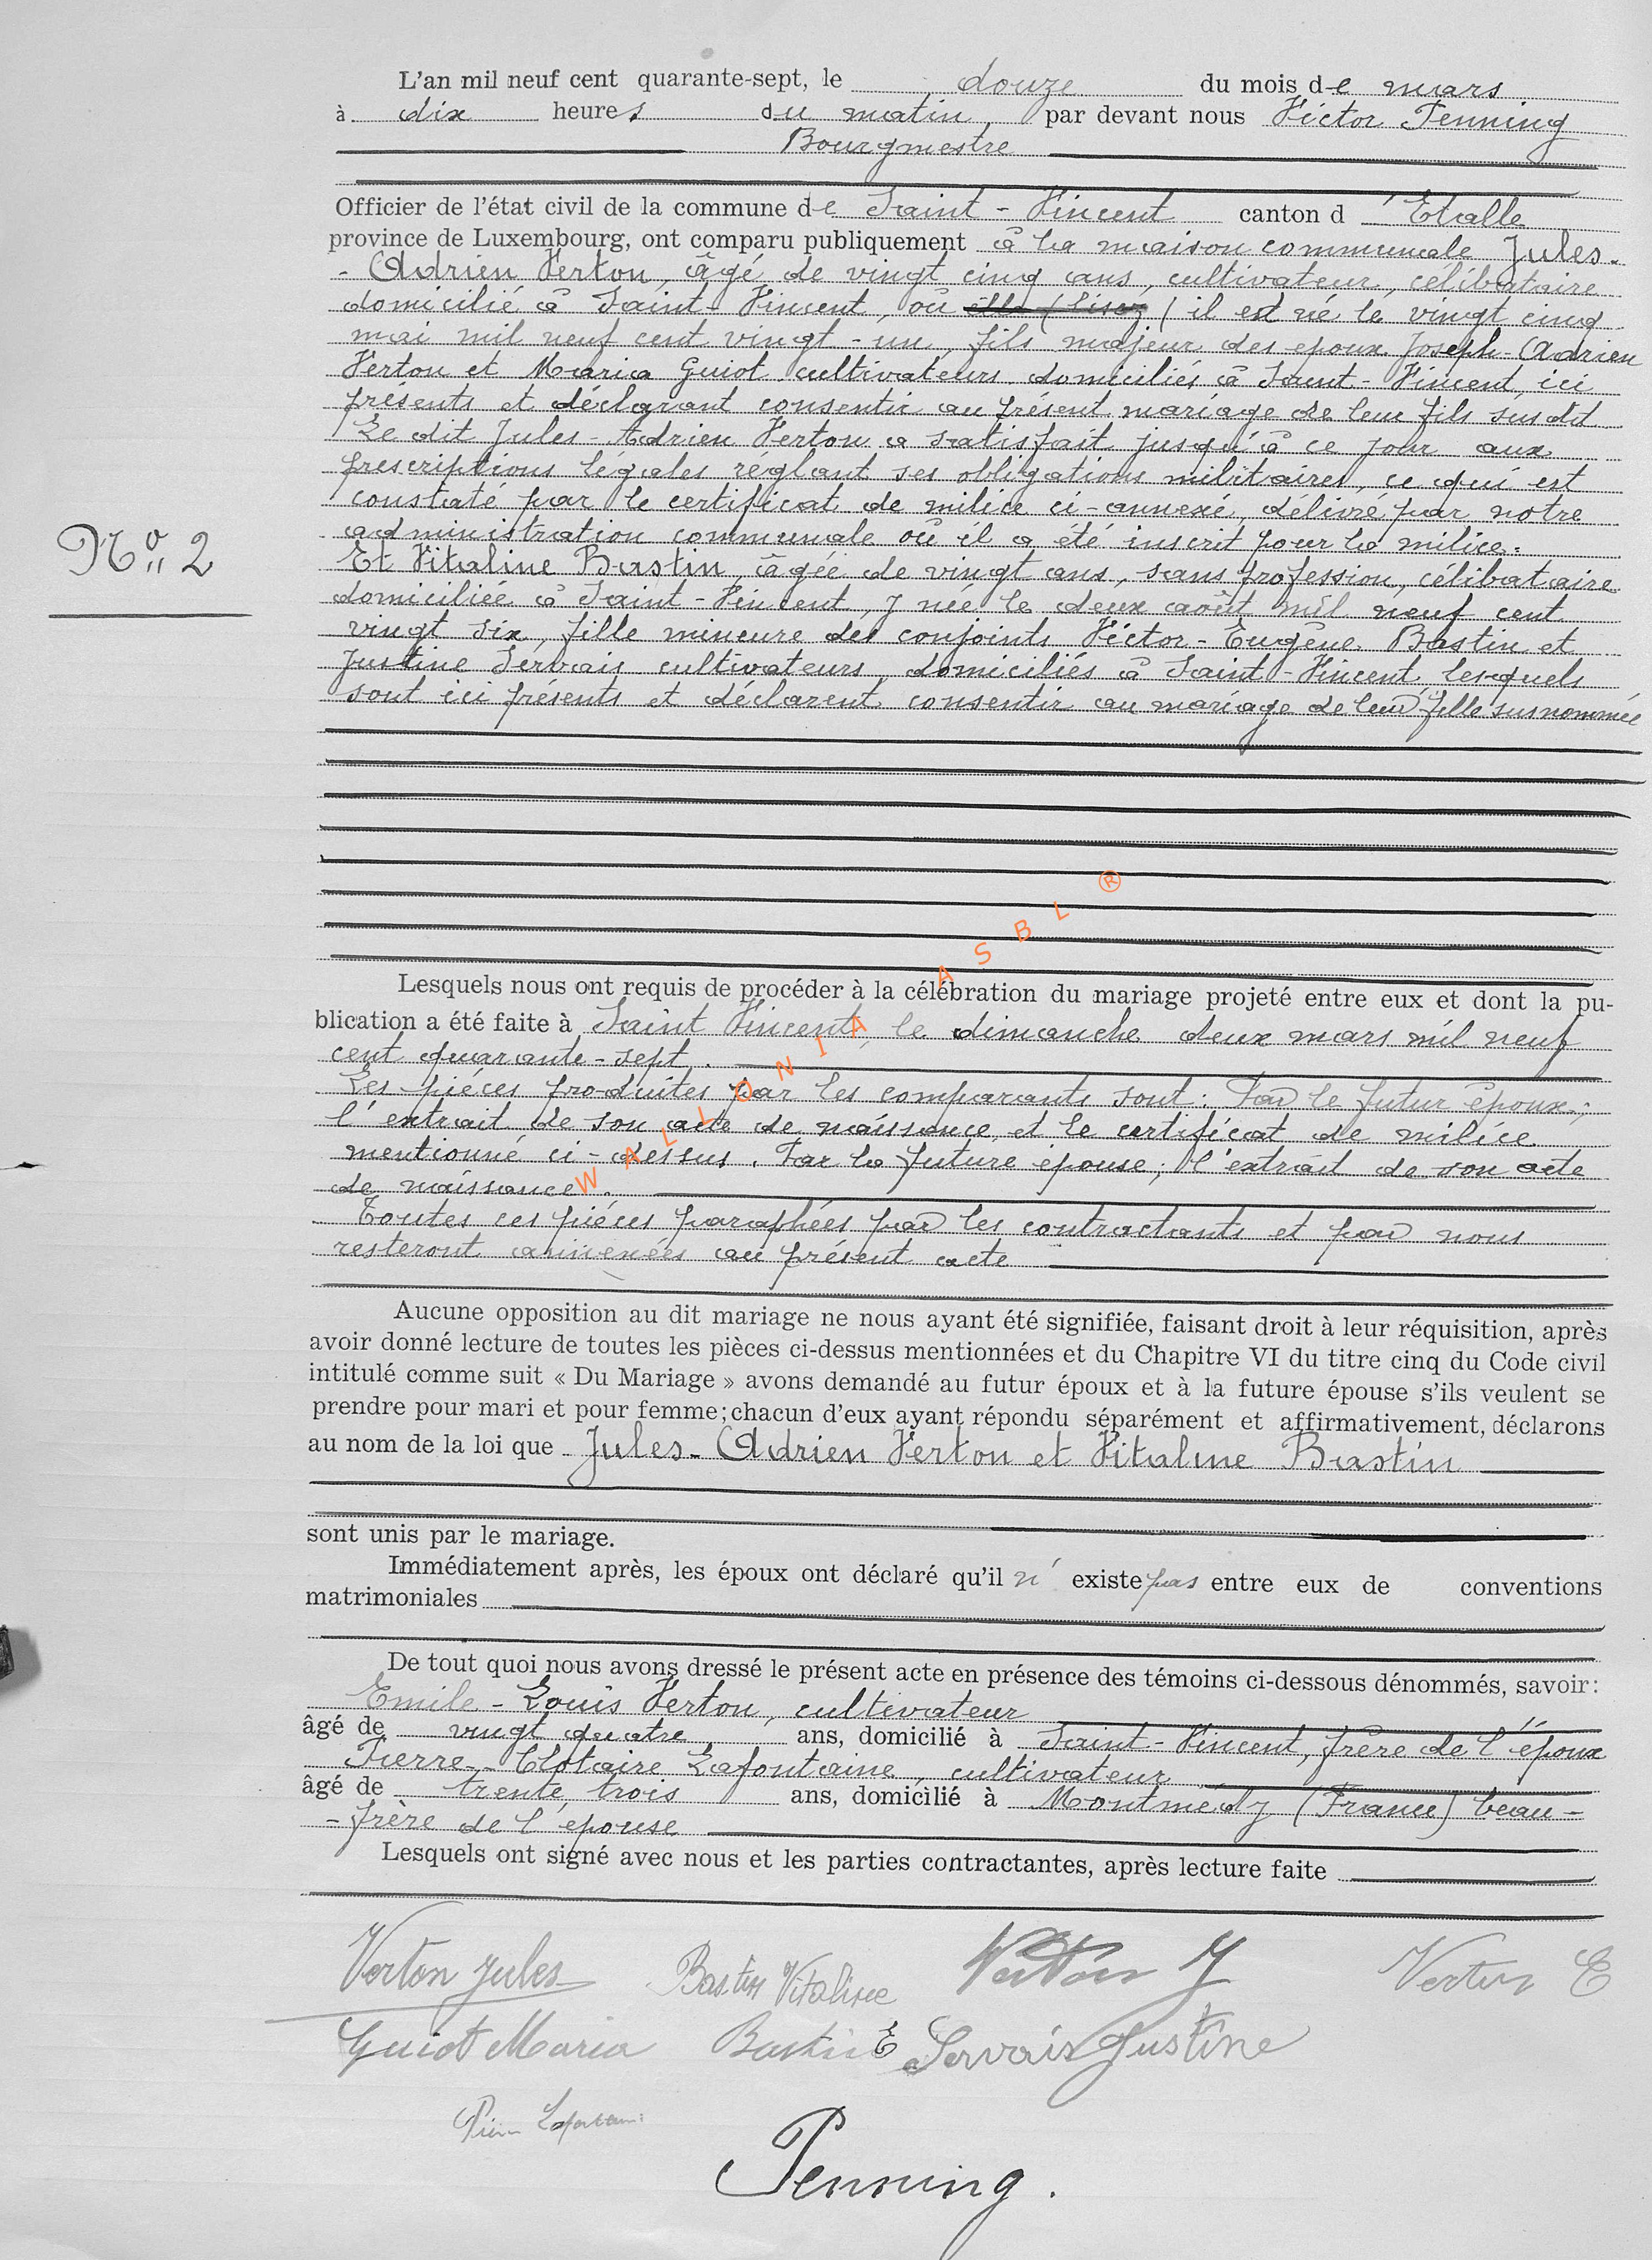 L'an mil neuf cent quarante-sept, le douze du mois de mars
à dix heures du matin, par devant nous Victor Penning
Bourgmestre
Officier de l'état civil de la commune de Saint-Vincent canton d'Etalle
province de Luxembourg, ont comparu publiquement à la maison communale Jules-
-Adrien Verton, âgé de vingt cinq ans, cultivateur, célibataire
domicilié à Saint-Vincent, où elle (lisez) il est né le vingt cinq
mai mil neuf cent vingt-un, fils majeur des epoux Joseph-Adrien
Verton et Maria Guiot cultivateurs domiciliés à Saint-Vincent, ici
présents et déclarant consentir au présent mariage de leur fils susdit
Le dit Jules-Adrien Verton a satisfait jusqu'à ce jour aux
prescriptions légales réglant ses obligations militaires, ce qui est
constaté par le certificat de milice ci-annexé, délivré par notre
administration communale où il a été inscrit pour la milice.
Nº 2
Et Vitaline Bastin, âgée de vingt ans, sans profession, célibataire
domiciliée à Saint-Vincent, y née le deux août mil neuf cent
vingt six, fille mineure des conjoints Victor-Eugène Bastin et
Justine Servais cultivateurs, domiciliés à Saint-Vincent, lesquels
sont ici présents et déclarent consentir au mariage de leur fille susnommée
Lesquels nous ont requis de procéder à la célébration du mariage projeté entre eux et dont la pu-
blication a été faite à Saint Vincent, le dimanche deux mars mil neuf
cent quarante-sept.
Les pièces produites par les comparants sont: Par le futur époux;
l'extrait de son acte de naissance, et le certificat de milice
mentionné ci-dessus. Par la future épouse; l'extrait de son acte
de naissance.
Toutes ces pièces paraphées par les contractants et par nous
resteront annexées au présent acte
Aucune opposition au dit mariage ne nous ayant été signifiée, faisant droit à leur réquisition, après
avoir donné lecture de toutes les pièces ci-dessus mentionnées et du Chapitre VI du titre cinq du Code civil
intitulé comme suit « Du Mariage » avons demandé au futur époux et à la future épouse s'ils veulent se
prendre pour mari et pour femme; chacun d'eux ayant répondu séparément et affirmativement, déclarons
au nom de la loi que Jules-Adrien Verton et Vitaline Bastin
sont unis par le mariage.
Immédiatement après, les époux ont déclaré qu'il n'existe pas entre eux de conventions
matrimoniales
De tout quoi nous avons dressé le présent acte en présence des témoins ci-dessous dénommés, savoir:
Emile-Louis Verton, cultivateur
âgé de vingt quatre ans, domicilié à Saint-Vincent, frère de l'époux
Pierre-Clotaire Lafontaine, cultivateur
âgé de trente trois ans, domicilié à Montmédy (France) beau-
-frère de l'épouse
Lesquels ont signé avec nous et les parties contractantes, après lecture faite
Verton Jules Bastin Vitaline Verton J Verton E
Guiot Maria Bastin E Servais Justine
Pierre Lafontaine
Penning.
WALLONIA ASBL ®